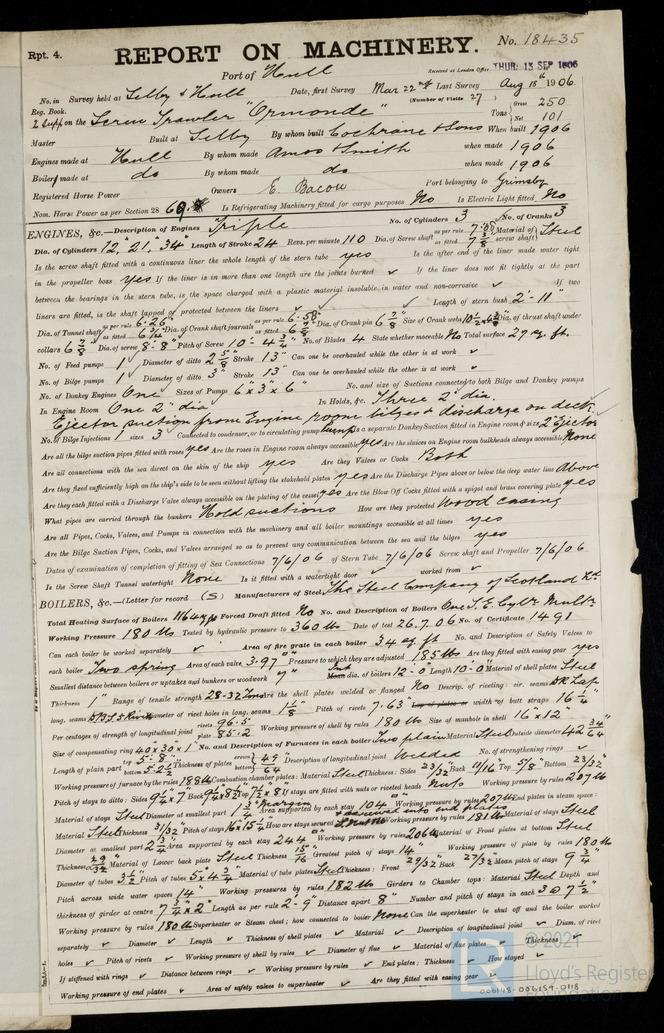 Rpt. 4.
REPORT ON MACHINERY.
No. 18435
Port of Hull
Received at London Office THUR. 13 SEP 1906
No. in Survey held at Selby & Hull Date, first Survey Mar 22nd Last Survey Aug 18th 1906.
Reg. Book. (Number of Visits 27)
2 Supp on the Screw Trawler "Ormonde" Tons Gross 250 Net 101
Master Built at Selby By whom built Cochrane & Sons When built 1906
Engines made at Hull By whom made Amos & Smith when made 1906
Boilers made at do By whom made do when made 1906
Registered Horse Power Owners E. Bacon Port belonging to Grimsby
Nom. Horse Power as per Section 28 69 Is Refrigerating Machinery fitted for cargo purposes No Is Electric Light fitted No
ENGINES, &c.—Description of Engines Triple No. of Cylinders 3 No. of Cranks 3
Dia. of Cylinders 12, 21, 34" Length of Stroke 24 Revs. per minute 110 Dia. of Screw shaft as per rule 7.05 as fitted 7 3/8 Material of screw shaft Steel
Is the screw shaft fitted with a continuous liner the whole length of the stern tube yes Is the after end of the liner made water tight
in the propeller boss yes If the liner is in more than one length are the joints burned ✓ If the liner does not fit tightly at the part
between the bearings in the stern tube, is the space charged with a plastic material insoluble in water and non-corrosive ✓ If two
liners are fitted, is the shaft lapped or protected between the liners ✓ Length of stern bush 2'-11"
Dia. of Tunnel shaft as per rule 6.26 as fitted 6 3/4 Dia. of Crank shaft journals as per rule 6.58" as fitted 6 7/8 Dia. of Crank pin 6 7/8 Size of Crank webs Dia. of thrust shaft under
collars 6 7/8 Dia. of screw 8'-8" Pitch of Screw 10'-4 3/4" No. of Blades 4 State whether moveable No Total surface 27 sq. ft.
No. of Feed pumps 1 Diameter of ditto 2 5/8 Stroke 13" Can one be overhauled while the other is at work ✓
No. of Bilge pumps 1 Diameter of ditto 3" Stroke 13" Can one be overhauled while the other is at work ✓
No. of Donkey Engines One Sizes of Pumps 6" x 3" x 6" No. and size of Suctions connected to both Bilge and Donkey pumps
In Engine Room One 2" dia In Holds, &c. Three 2" dia.
Ejector suction from Engine room bilges & discharge on deck.
No. of Bilge Injections 1 sizes 3 Connected to condenser, or to circulating pump Pump Is a separate Donkey Suction fitted in Engine room & size 2" Ejector
Are all the bilge suction pipes fitted with roses yes Are the roses in Engine room always accessible yes Are the sluices on Engine room bulkheads always accessible None
Are all connections with the sea direct on the skin of the ship yes Are they Valves or Cocks Both
Are they fixed sufficiently high on the ship's side to be seen without lifting the stokehold plates yes Are the Discharge Pipes above or below the deep water line Above
Are they each fitted with a Discharge Valve always accessible on the plating of the vessel yes Are the Blow Off Cocks fitted with a spigot and brass covering plate yes
What pipes are carried through the bunkers Hold suctions How are they protected Wood casing
Are all Pipes, Cocks, Valves, and Pumps in connection with the machinery and all boiler mountings accessible at all times yes
Are the Bilge Suction Pipes, Cocks, and Valves arranged so as to prevent any communication between the sea and the bilges yes
Dates of examination of completion of fitting of Sea Connections 7/6/06 of Stern Tube 7/6/06 Screw shaft and Propeller 7/6/06
Is the Screw Shaft Tunnel watertight None Is it fitted with a watertight door ✓ worked from ✓
BOILERS, &c.—(Letter for record (S) Manufacturers of Steel The Steel Company of Scotland Ld.
Total Heating Surface of Boilers 1164 sq ft Forced Draft fitted No No. and Description of Boilers One S.E. Cylr. Mult.
Working Pressure 180 lbs Tested by hydraulic pressure to 360 lbs Date of test 26.7.06 No. of Certificate 1491
Can each boiler be worked separately ✓ Area of fire grate in each boiler 34 sq. ft No. and Description of Safety Valves to
each boiler Two spring Area of each valve 3.97 Pressure to which they are adjusted 185 lbs Are they fitted with easing gear yes
Smallest distance between boilers or uptakes and bunkers or woodwork 7" dia. of boilers 12'-0 Length 10'-0" Material of shell plates Steel
Thickness 1" Range of tensile strength 28-32 Are the shell plates welded or flanged No Descrip. of riveting: cir. seams DR Lap
long. seams Diameter of rivet holes in long. seams 1 1/8 Pitch of rivets 7.63 width of butt straps 16 1/4
Per centages of strength of longitudinal joint rivets 96.5 plate 85.2 Working pressure of shell by rules 180 lbs Size of manhole in shell 16" x 12"
Size of compensating ring 40 x 30 x 1" No. and Description of Furnaces in each boiler Two plain Material Steel Outside diameter 42 34/64
Length of plain part top 5'-8" bottom Thickness of plates crown bottom 49/64 Description of longitudinal joint Welded No. of strengthening rings ✓
Working pressure of furnace by the rules 188 lbs Combustion chamber plates: Material Steel Thickness: Sides 23/32 Back 11/16 Top 5/8 Bottom 23/32
Pitch of stays to ditto: Sides 9 1/4 x 7" Back Top 7 1/2 x 8" If stays are fitted with nuts or riveted heads Nuts Working pressure by rules 207 lbs
Material of stays Steel Diameter at smallest part 1 3/4" Area supported by each stay 104 Working pressure by rules 207 lbs End plates in steam space:
Material Steel Thickness 31/32 Pitch of stays 16 x 15 1/4 How are stays secured Working pressure by rules 181 lbs Material of stays Steel
Diameter at smallest part 2 3/4 Area supported by each stay 244 Working pressure by rules 206 lbs Material of Front plates at bottom Steel
Thickness 29/32 Material of Lower back plate Steel Thickness 15/16 Greatest pitch of stays 14" Working pressure of plate by rules 180 lbs
Diameter of tubes 3 1/2 Pitch of tubes 5 x 4 3/4 Material of tube plates Steel Thickness: Front 29/32 Back 27/32 Mean pitch of stays 9 3/4
Pitch across wide water spaces 14" Working pressures by rules 182 lbs Girders to Chamber tops: Material Steel Depth and
thickness of girder at centre 7 3/4 x 2" Length as per rule 2'-9" Distance apart 8" Number and pitch of stays in each 3 @ 7 1/2"
Working pressure by rules 180 lbs Superheater or Steam chest; how connected to boiler None Can the superheater be shut off and the boiler worked
separately ✓ Diameter ✓ Length ✓ Thickness of shell plates ✓ Material ✓ Description of longitudinal joint ✓ Diam. of rivet
holes ✓ Pitch of rivets ✓ Working pressure of shell by rules ✓ Diameter of flue ✓ Material of flue plates ✓ Thickness ✓
If stiffened with rings ✓ Distance between rings ✓ Working pressure by rules ✓ End plates: Thickness ✓ How stayed ✓
Working pressure of end plates ✓ Area of safety valves to superheater ✓ Are they fitted with easing gear ✓
© 2021
Lloyd's Register
Foundation
006148-006154-0118